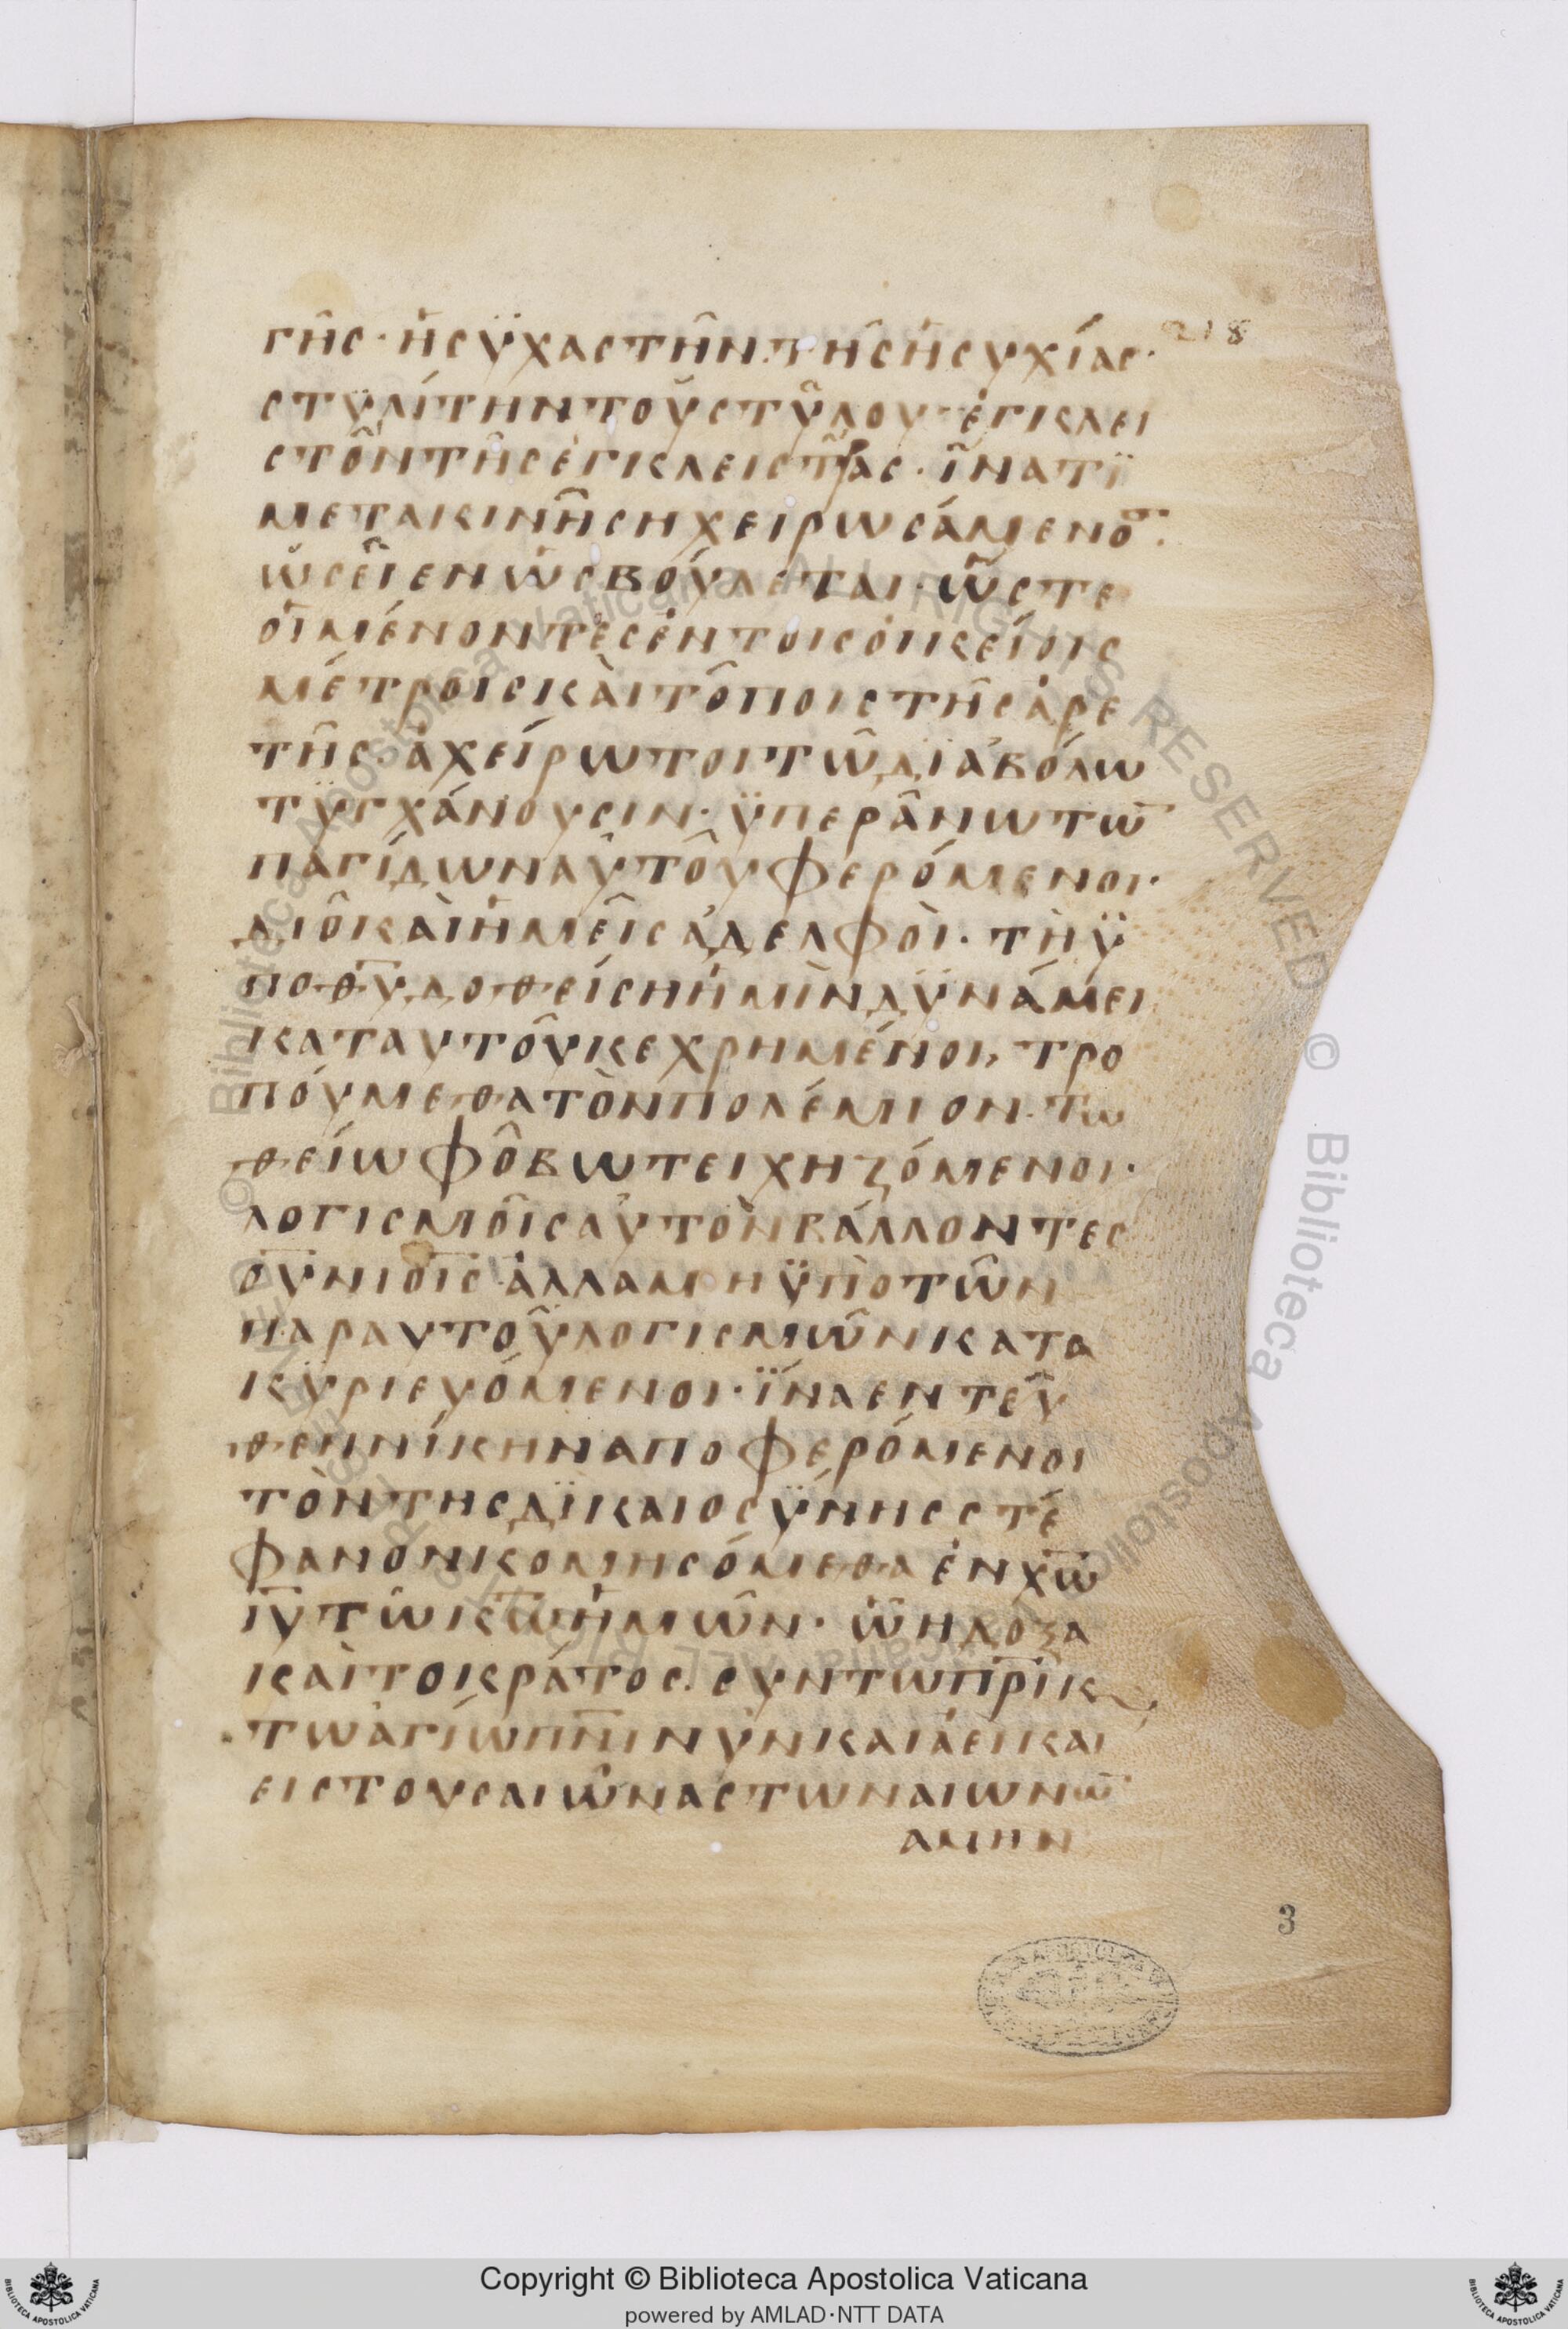 218
γῆς· ἡσϋχαστὴν τῆς ἡσυχίας·
στυλίτην τοῦ στύλου· ἐγκλει
στὸν τῆς ἐγκλειστρας· ἵνα τϊ
μετακινήση χειρωσάμενο̅·
ὡσεὶ ἐν ὡς βούλεται· ὥστε
οἱ μένοντες ἐν τοισ ὀικείοις
μέτροις κὰι τόποις τῆς ἀρε
τῆς· ἀχείρωτοι τῶ δϊαβόλω
τϋγχάνουσιν· ϋπεράνω τω̅
παγίδων αὐτοῦ φερόμενοι·
διὸ κὰι ἡμεῖς ἀδελφοὶ· τὴ ϋ
πο θ̅υ̅ δοθείση ἡμὶν δϋνάμει
κατ αυτοῦ κεχρημένοι, τρο
πόυμεθα τὸν πολέμιον· τω
θείω φόβω τειχηζόμενοι·
λογισμοῖς αὐτὸν βάλλοντες
ο̅υ̅νιο̅ι̅ς· ἀλλα μη ϋπὸ τῶν
παρ αυτοῦ λογισμῶν κατα
κϋριευόμενοι· ΐνα εντεῦ
θεν νίκην αποφερόμενοι
τὸν της δϊκαιοσΰνης στέ
φανον κομησόμεθα ἐν χ̅ω̅
ι̅υ̅ τῶ κ̅ω̅ ἡμῶν· ὧ η δόξα
κὰι το κράτος· συν τω π̅ρ̅ι̅ κ
τω ἁγίω π̅ν̅ι̅ νῦν και ἀεὶ και
εις τους αιῶνας των αιωνω̅
αμην
3
Copyright © Biblioteca Apostolica Vaticana
powered by AMLAD·NTT DATA